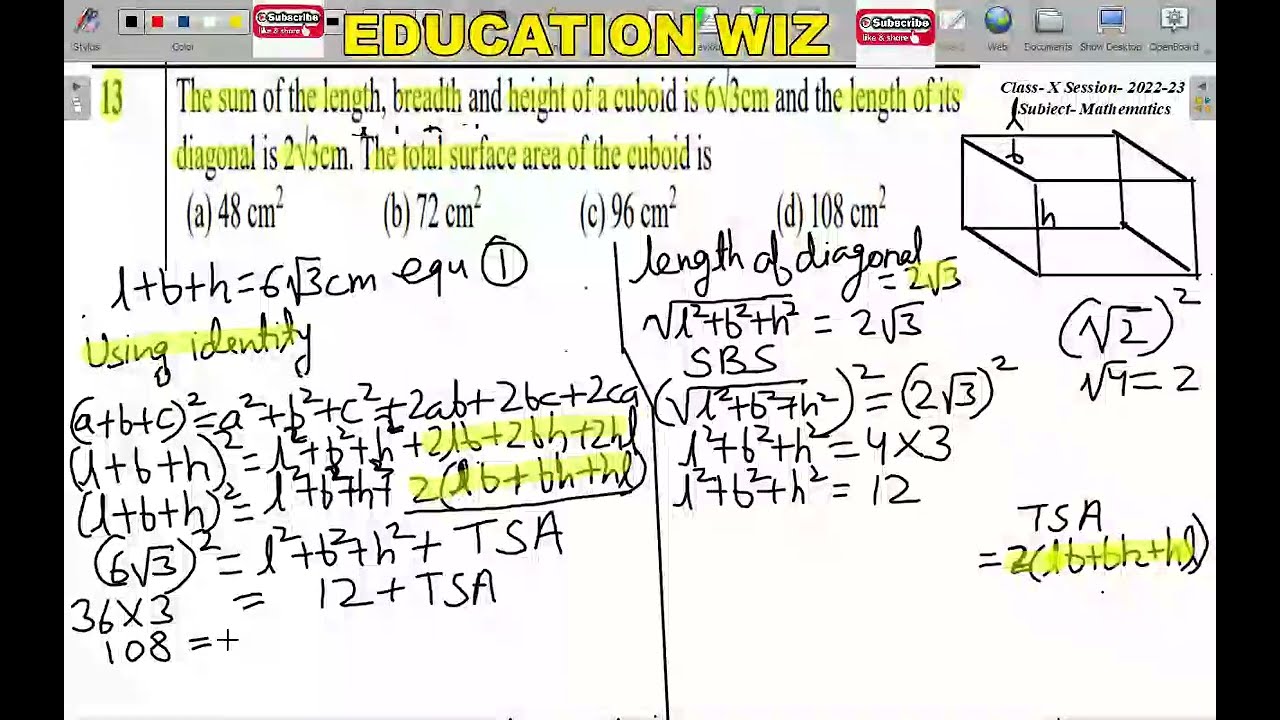 Styles
Color
Subscribe
like & share
EDUCATION WIZ
Subscribe
like & share
Web
Documents
Show Desktop
OpenBoard
Class- X Session- 2022-23
Subject- Mathematics
13
The sum of the length, breadth and height of a cuboid is 6√3cm and the length of its
diagonal is 2√3cm. The total surface area of the cuboid is
(a) 48 cm²
(b) 72 cm²
(c) 96 cm²
(d) 108 cm²
l
b
h
l+b+h=6√3cm equ ①
Using identity
(a+b+c)²=a²+b²+c²+2ab+2bc+2ca
(l+b+h)²=l²+b²+h²+2lb+2bh+2hl
(l+b+h)²=l²+b²+h²+2(lb+bh+hl)
(6√3)²=l²+b²+h²+TSA
36×3 = 12+TSA
108 =+
length of diagonal
=2√3
√l²+b²+h² = 2√3
SBS
(√l²+b²+h²)²=(2√3)²
l²+b²+h²=4×3
l²+b²+h²=12
(√2)²
√4=2
TSA
=2(lb+bh+hl)